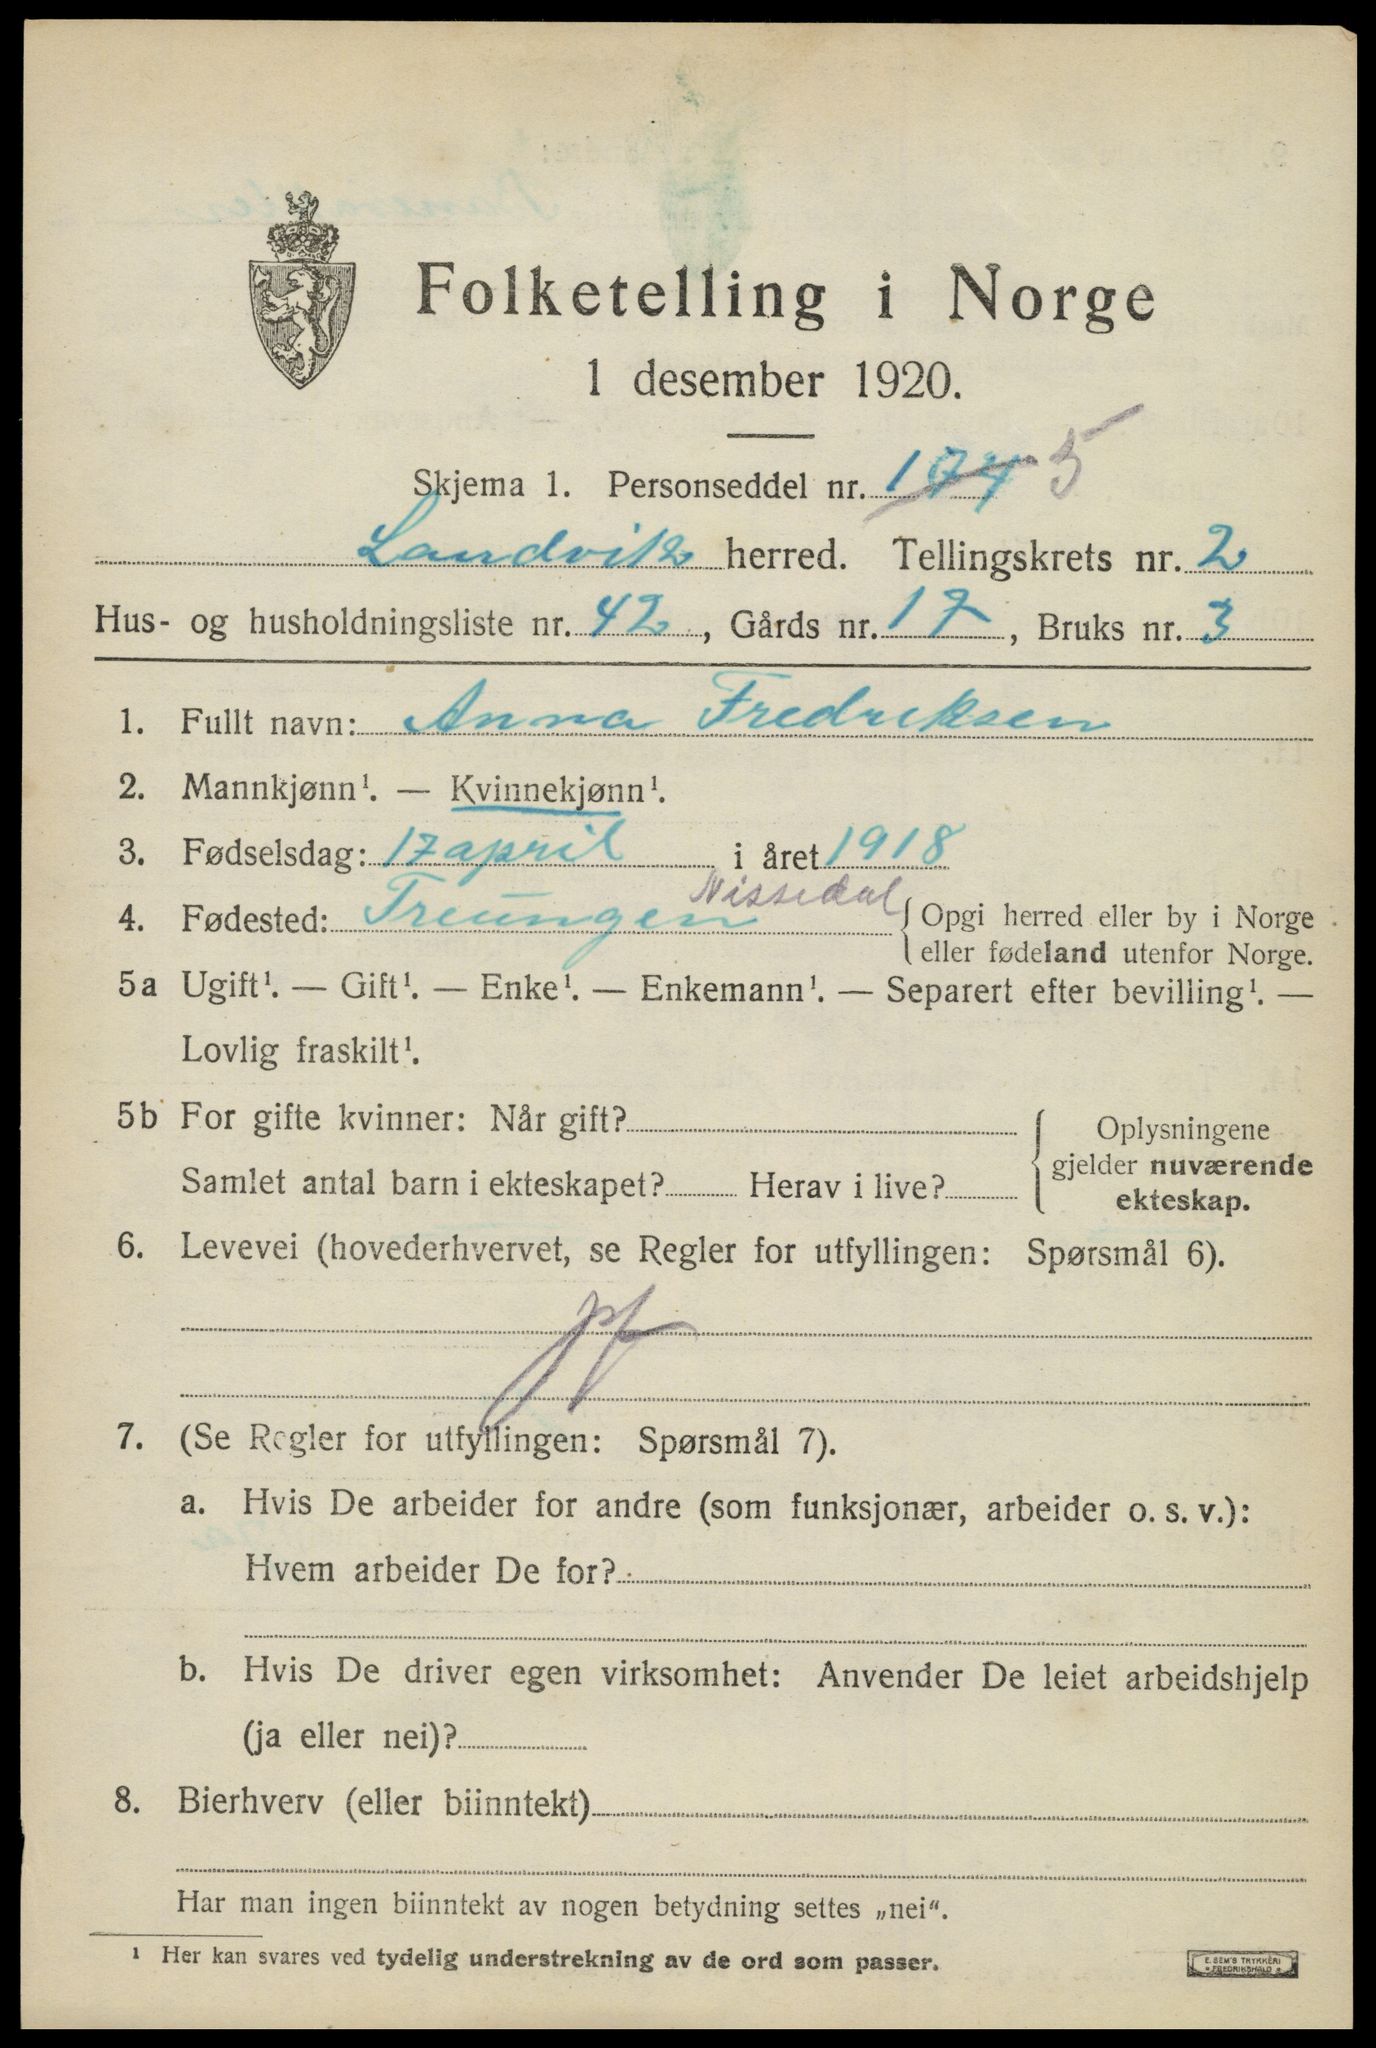 Folketelling i Norge
1 desember 1920.
Skjema 1. Personseddel nr. 174 5
Landvik herred. Tellingskrets nr. 2
Hus- og husholdningsliste nr. 42, Gårds nr. 17, Bruks nr. 3
1. Fullt navn: Anna Fredriksen
2. Mannkjønn¹. — Kvinnekjønn¹.
3. Fødselsdag: 17 april i året 1918
Nissedal
4. Fødested: Treungen {Opgi herred eller by i Norge
eller fødeland utenfor Norge.
5a Ugift¹. — Gift¹. — Enke¹. — Enkemann¹. — Separert efter bevilling¹. —
Lovlig fraskilt¹.
5b For gifte kvinner: Når gift?
Samlet antal barn i ekteskapet? Herav i live?
{Oplysningene
gjelder nuværende
ekteskap.
6. Levevei (hovederhvervet, se Regler for utfyllingen: Spørsmål 6).
pf
7. (Se Regler for utfyllingen: Spørsmål 7).
a. Hvis De arbeider for andre (som funksjonær, arbeider o. s. v.):
Hvem arbeider De for?
b. Hvis De driver egen virksomhet: Anvender De leiet arbeidshjelp
(ja eller nei)?
8. Bierhverv (eller biinntekt)
Har man ingen biinntekt av nogen betydning settes „nei“.
¹ Her kan svares ved tydelig understrekning av de ord som passer.
E. SEM'S TRYKKERI
FREDRIKSHALD